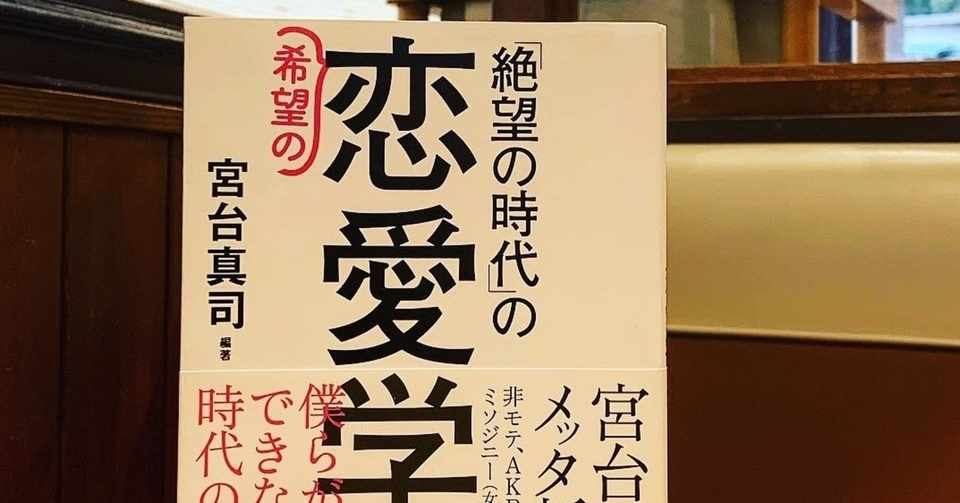 「絶望の時代」の
希望の
恋愛学
宮台真司 編著
宮台
メッタ
非モテ、AKB
ミソジニー(女
僕らが
できな
時代の